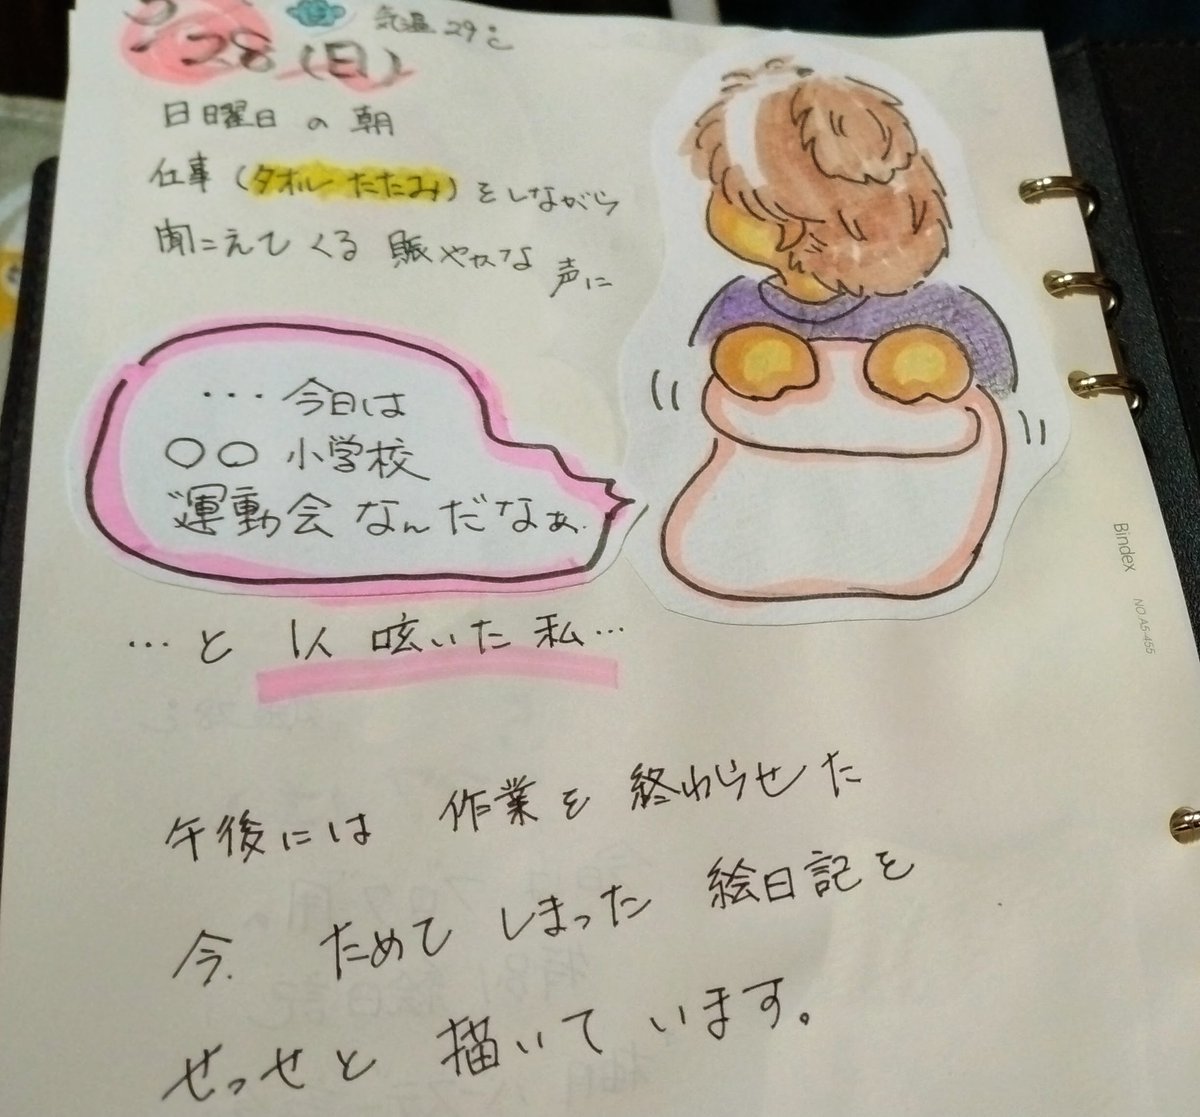 28 (日)
気温 29℃
日曜日の朝
仕事 (タオルたたみ) をしながら
聞こえてくる 賑やかな 声に
・・・今日は
○○小学校
運動会なんだなぁ.
…と 1人 呟いた 私…
午後には 作業を 終わらせた
今. ためて しまった 絵日記を
せっせと 描いて います。
Bindex
NO.A5-455